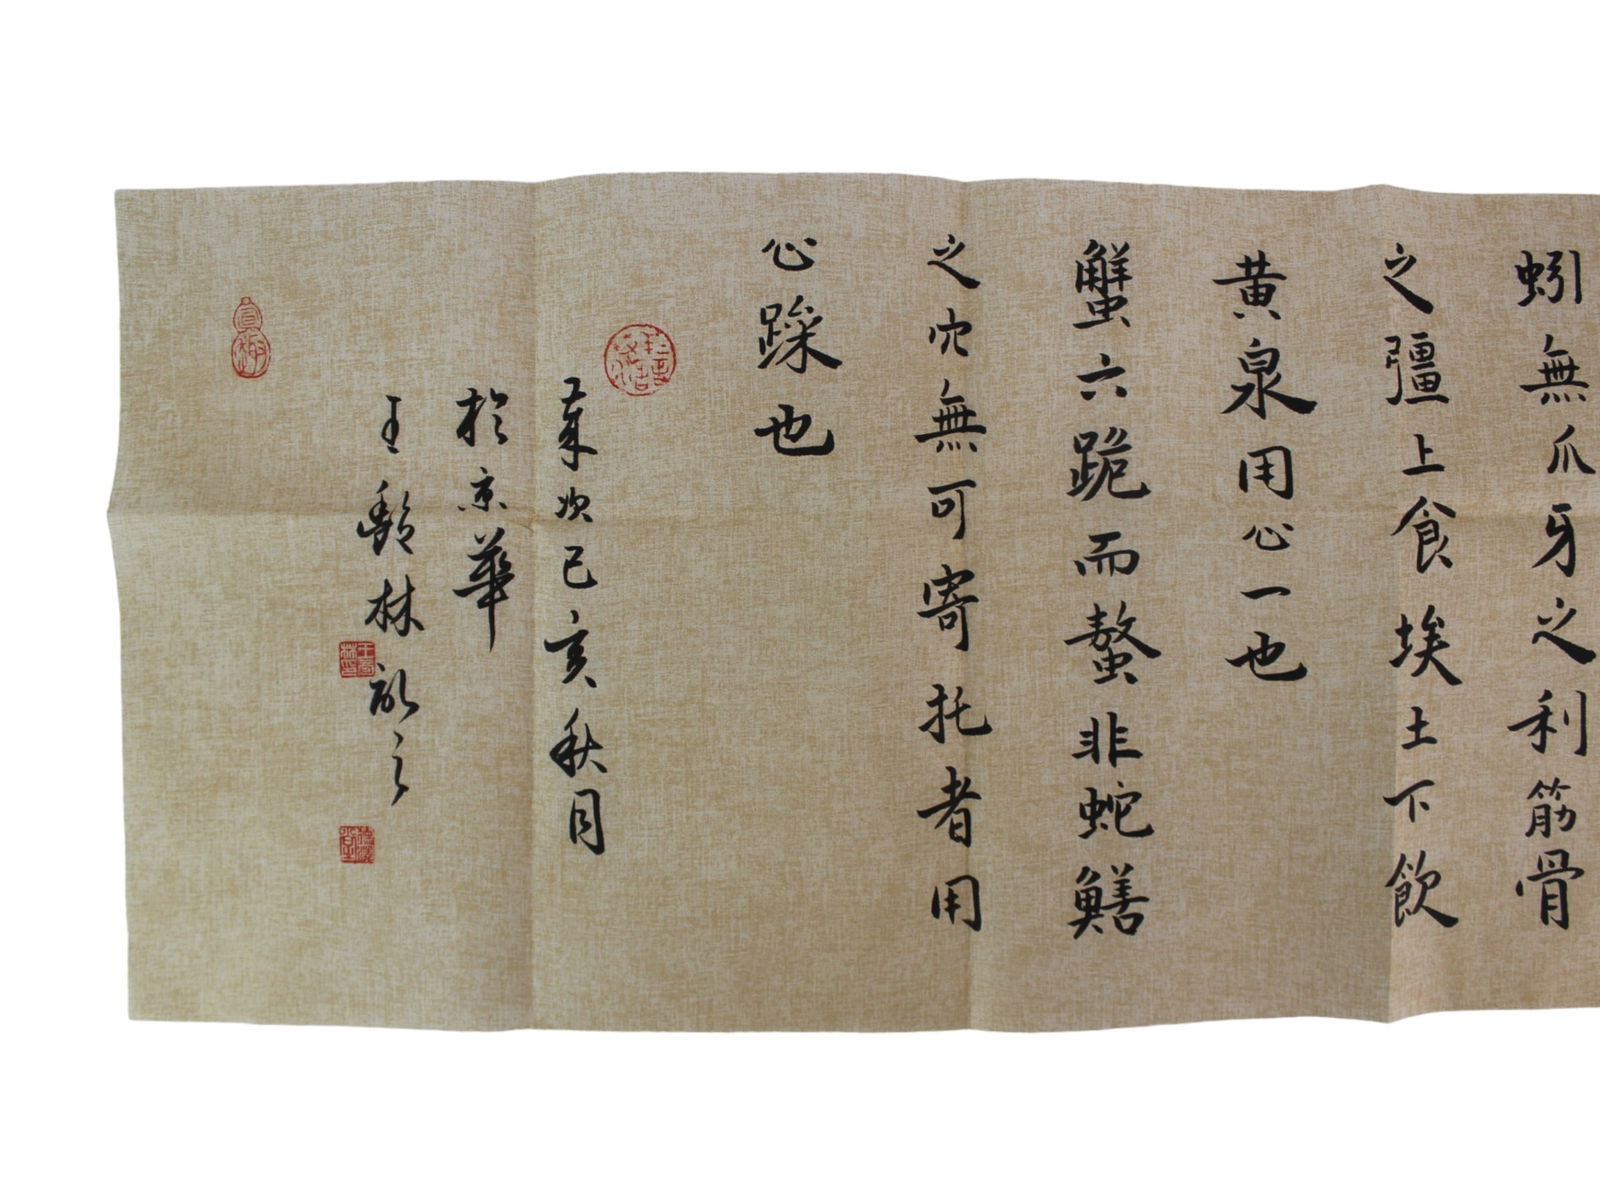 蚓無爪牙之利筋骨
之彊上食埃土下飲
黃泉用心一也
蟹六跪而螯非蛇鱔
之穴無可寄托者用
心躁也
歲次己亥秋月
於京華
王 林敬之